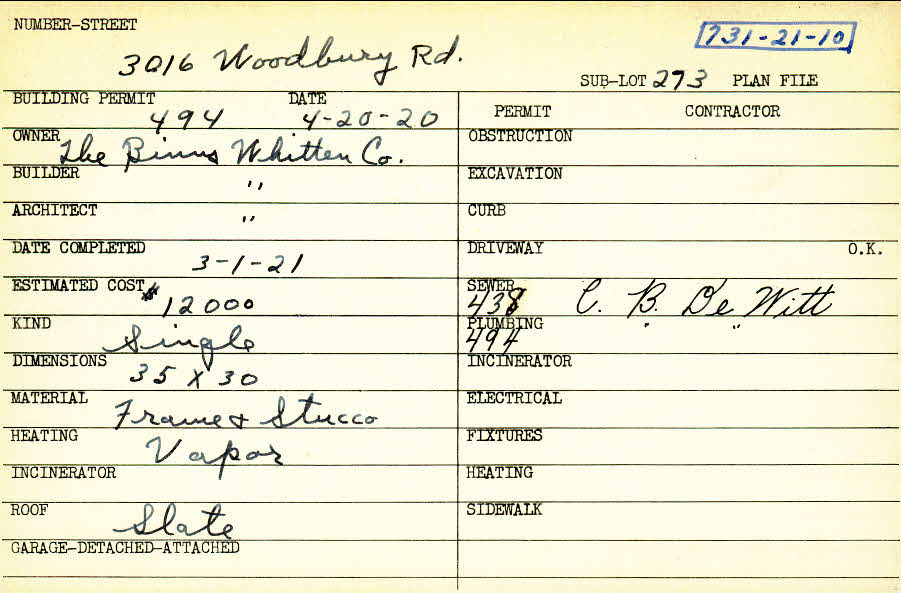 NUMBER-STREET
3016 Woodbury Rd.
731-21-10
SUB-LOT 273 PLAN FILE
BUILDING PERMIT 494 DATE 4-20-20
OWNER The Binns Whitten Co.
BUILDER "
ARCHITECT "
DATE COMPLETED 3-1-21
ESTIMATED COST $12000
KIND Single
DIMENSIONS 35 X 30
MATERIAL Frame & Stucco
HEATING Vapor
INCINERATOR
ROOF Slate
GARAGE-DETACHED-ATTACHED
PERMIT CONTRACTOR
OBSTRUCTION
EXCAVATION
CURB
DRIVEWAY O.K.
SEWER 438 C. B. De Witt
PLUMBING 494 " "
INCINERATOR
ELECTRICAL
FIXTURES
HEATING
SIDEWALK